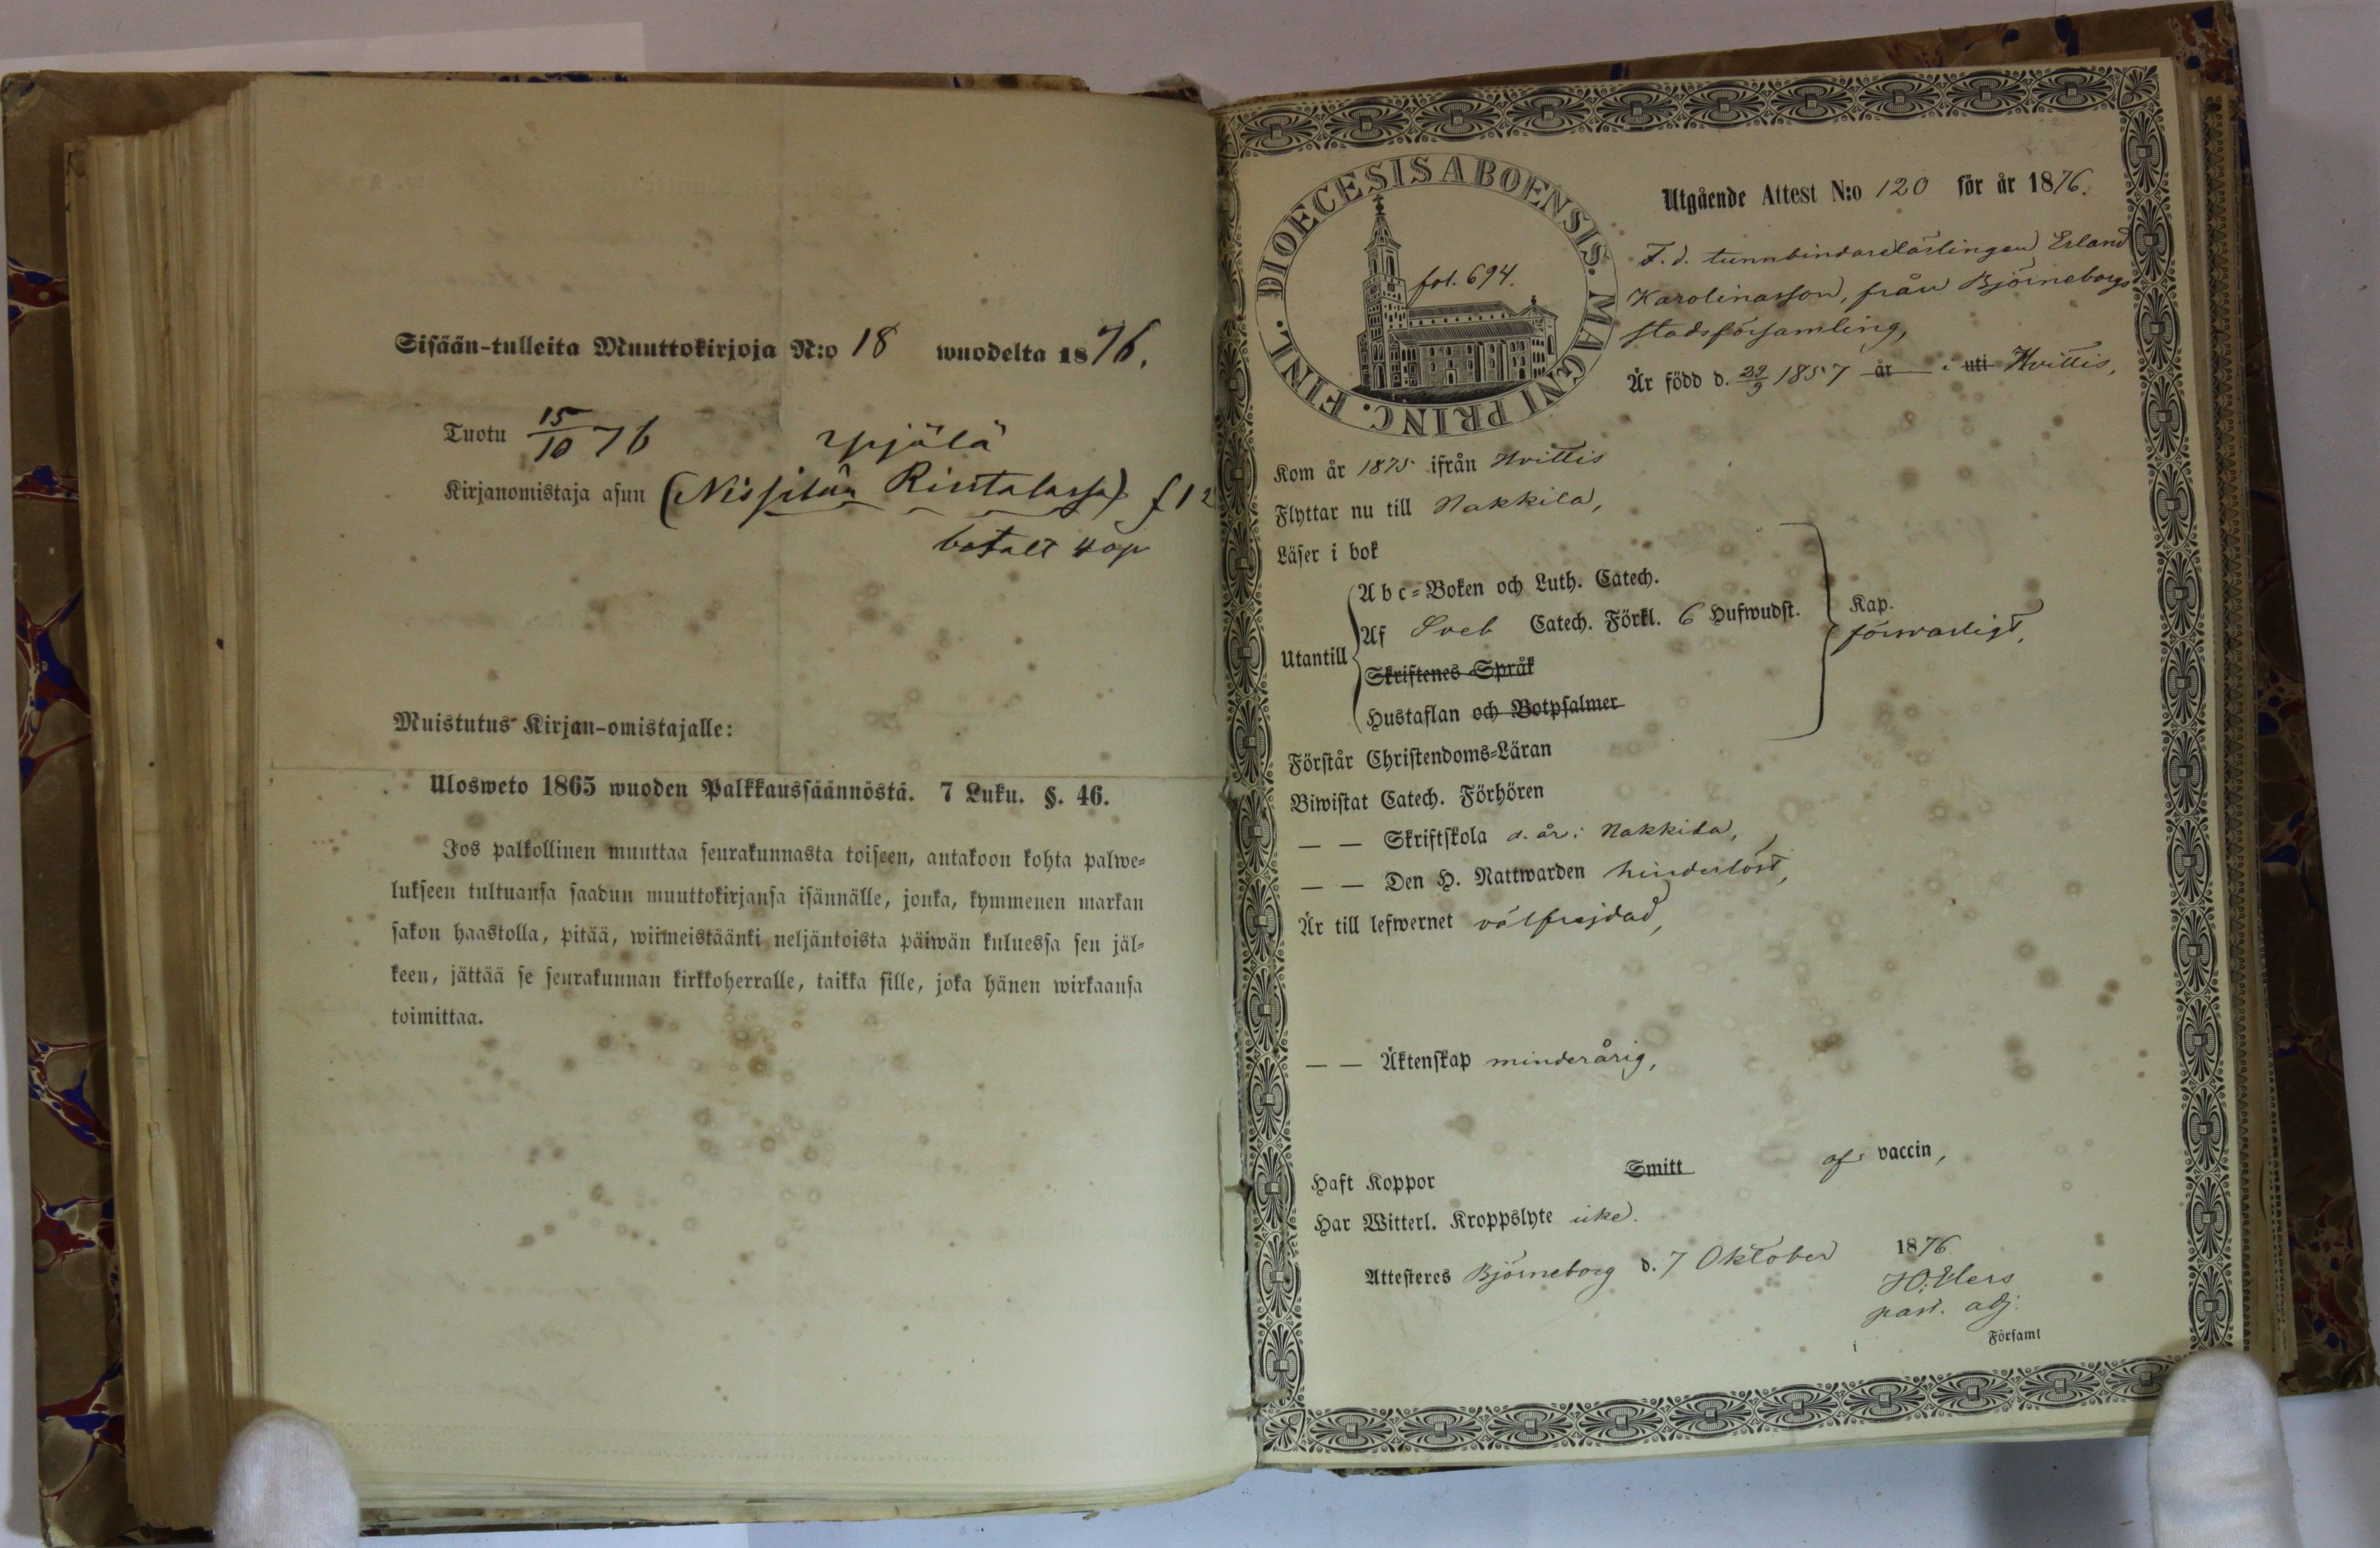 Sisään-tulleita Muuttokirjoja N:o 18 wuodelta 1876.
Tuotu 15/10 76 Ypjälä
Kirjanomistaja asuu (Nissilän Rintalassa) f 12
betalt 40p
Muistutus Kirjan-omistajalle:
Ulosweto 1865 wuoden Palkkaussäännöstä. 7 Luku. §. 46.
Jos palkollinen muuttaa seurakunnasta toiseen, antakoon kohta palwe-
lukseen tultuansa saadun muuttokirjansa isännälle, jonka, kymmenen markan
sakon haastolla, pitää, wiimeistäänki neljäntoista päiwän kuluessa sen jäl-
keen, jättää se seurakunnan kirkkoherralle, taikka sille, joka hänen wirkaansa
toimittaa.
DIOECESIS ABOENSIS. MAGNI PRINC. FINL.
fol. 694.
Utgående Attest N:o 120 för år 1876.
F. d. tunnbindarelärlingen Erland
Karolinasson, från Björneborgs
stadsförsamling,
Är född d. 29/9 1857 år i uti Hvittis,
Kom år 1875 ifrån Hvittis
Flyttar nu till Nakkila,
Läser i bok
Utantill
A b c-Boken och Luth. Catech.
Af Sveb Catech. Förkl. 6 Hufwudst.
Skriftenes Språk
Hustaflan och Botpsalmer
Kap.
försvarligt,
Förstår Christendoms-Läran
Biwistat Catech. Förhören
— — Skriftskola d. år i Nakkila,
— — Den H. Nattwarden hinderlöst,
Är till lefwernet välfrejdad,
— — Äktenskap minderårig,
Haft Koppor Smitt af vaccin,
Har Witterl. Kroppslyte icke.
Attesteres Björneborg d. 7 Oktober 1876
past. adj.
i Församl